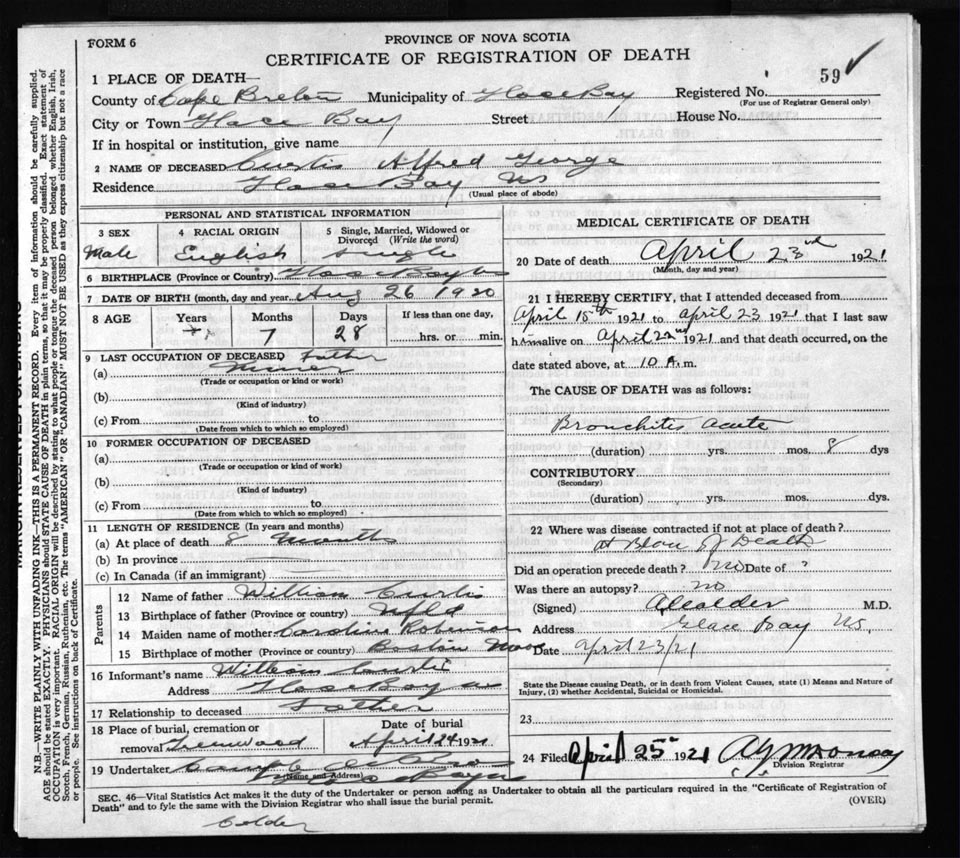 FORM 6
PROVINCE OF NOVA SCOTIA
CERTIFICATE OF REGISTRATION OF DEATH
59
1 PLACE OF DEATH—
County of Cape Breton Municipality of Glace Bay Registered No.
(For use of Registrar General only)
City or Town Glace Bay Street House No.
If in hospital or institution, give name
2 NAME OF DECEASED Curtis Alfred George
Residence Glace Bay NS
(Usual place of abode)
PERSONAL AND STATISTICAL INFORMATION
3 SEX 4 RACIAL ORIGIN 5 Single, Married, Widowed or Divorced (Write the word)
Male English Single
6 BIRTHPLACE (Province or Country) Glace Bay
7 DATE OF BIRTH (month, day and year) Aug 26 1920
8 AGE Years Months Days If less than one day,
7 28 hrs. or min.
9 LAST OCCUPATION OF DECEASED Father
(a) Miner
(Trade or occupation or kind of work)
(b)
(Kind of industry)
(c) From to
(Date from which to which so employed)
10 FORMER OCCUPATION OF DECEASED
(a)
(Trade or occupation or kind of work)
(b)
(Kind of industry)
(c) From to
(Date from which to which so employed)
11 LENGTH OF RESIDENCE (In years and months)
(a) At place of death 8 Months
(b) In province
(c) In Canada (if an immigrant)
Parents
12 Name of father William Curtis
13 Birthplace of father (Province or country) Nfld
14 Maiden name of mother Caroline Robinson
15 Birthplace of mother (Province or country) Boston Mass
16 Informant's name William Curtis
Address Glace Bay NS
17 Relationship to deceased Father
18 Place of burial, cremation or removal Greenwood
Date of burial
April 24 1921
19 Undertaker
(Name and Address)
MEDICAL CERTIFICATE OF DEATH
20 Date of death April 23rd 1921
(Month, day and year)
21 I HEREBY CERTIFY, that I attended deceased from
April 15th 1921 to April 23 1921 that I last saw
h im alive on April 22nd 1921 and that death occurred, on the
date stated above, at 10 A.m.
The CAUSE OF DEATH was as follows:
Bronchitis Acute
(duration) yrs. mos. 8 dys
CONTRIBUTORY
(Secondary)
(duration) yrs. mos. dys.
22 Where was disease contracted if not at place of death?
of Death
Did an operation precede death? No Date of ?
Was there an autopsy? no
(Signed) A Calder M.D.
Address Glace Bay NS.
Date April 23/21
State the Disease causing Death, or in death from Violent Causes, state (1) Means and Nature of
Injury, (2) whether Accidental, Suicidal or Homicidal.
23
24 Filed April 25th 1921
Division Registrar
SEC. 46—Vital Statistics Act makes it the duty of the Undertaker or person acting as Undertaker to obtain all the particulars required in the "Certificate of Registration of
Death" and to fyle the same with the Division Registrar who shall issue the burial permit.
(OVER)
Calder
N.B.—WRITE PLAINLY WITH UNFADING INK—THIS IS A PERMANENT RECORD. Every item of information should be carefully supplied.
AGE should be stated EXACTLY. PHYSICIANS should STATE CAUSE OF DEATH in plain terms, so that it may be properly classified. Exact statement of
OCCUPATION is very important. RACIAL ORIGIN will be described by stating to what people or tongue the deceased person belonged whether English, Irish,
Scotch, French, German, Russian, Ruthenian, etc. The terms "AMERICAN" OR "CANADIAN" MUST NOT BE USED as they express citizenship but not a race
or people. See instructions on back of Certificate.